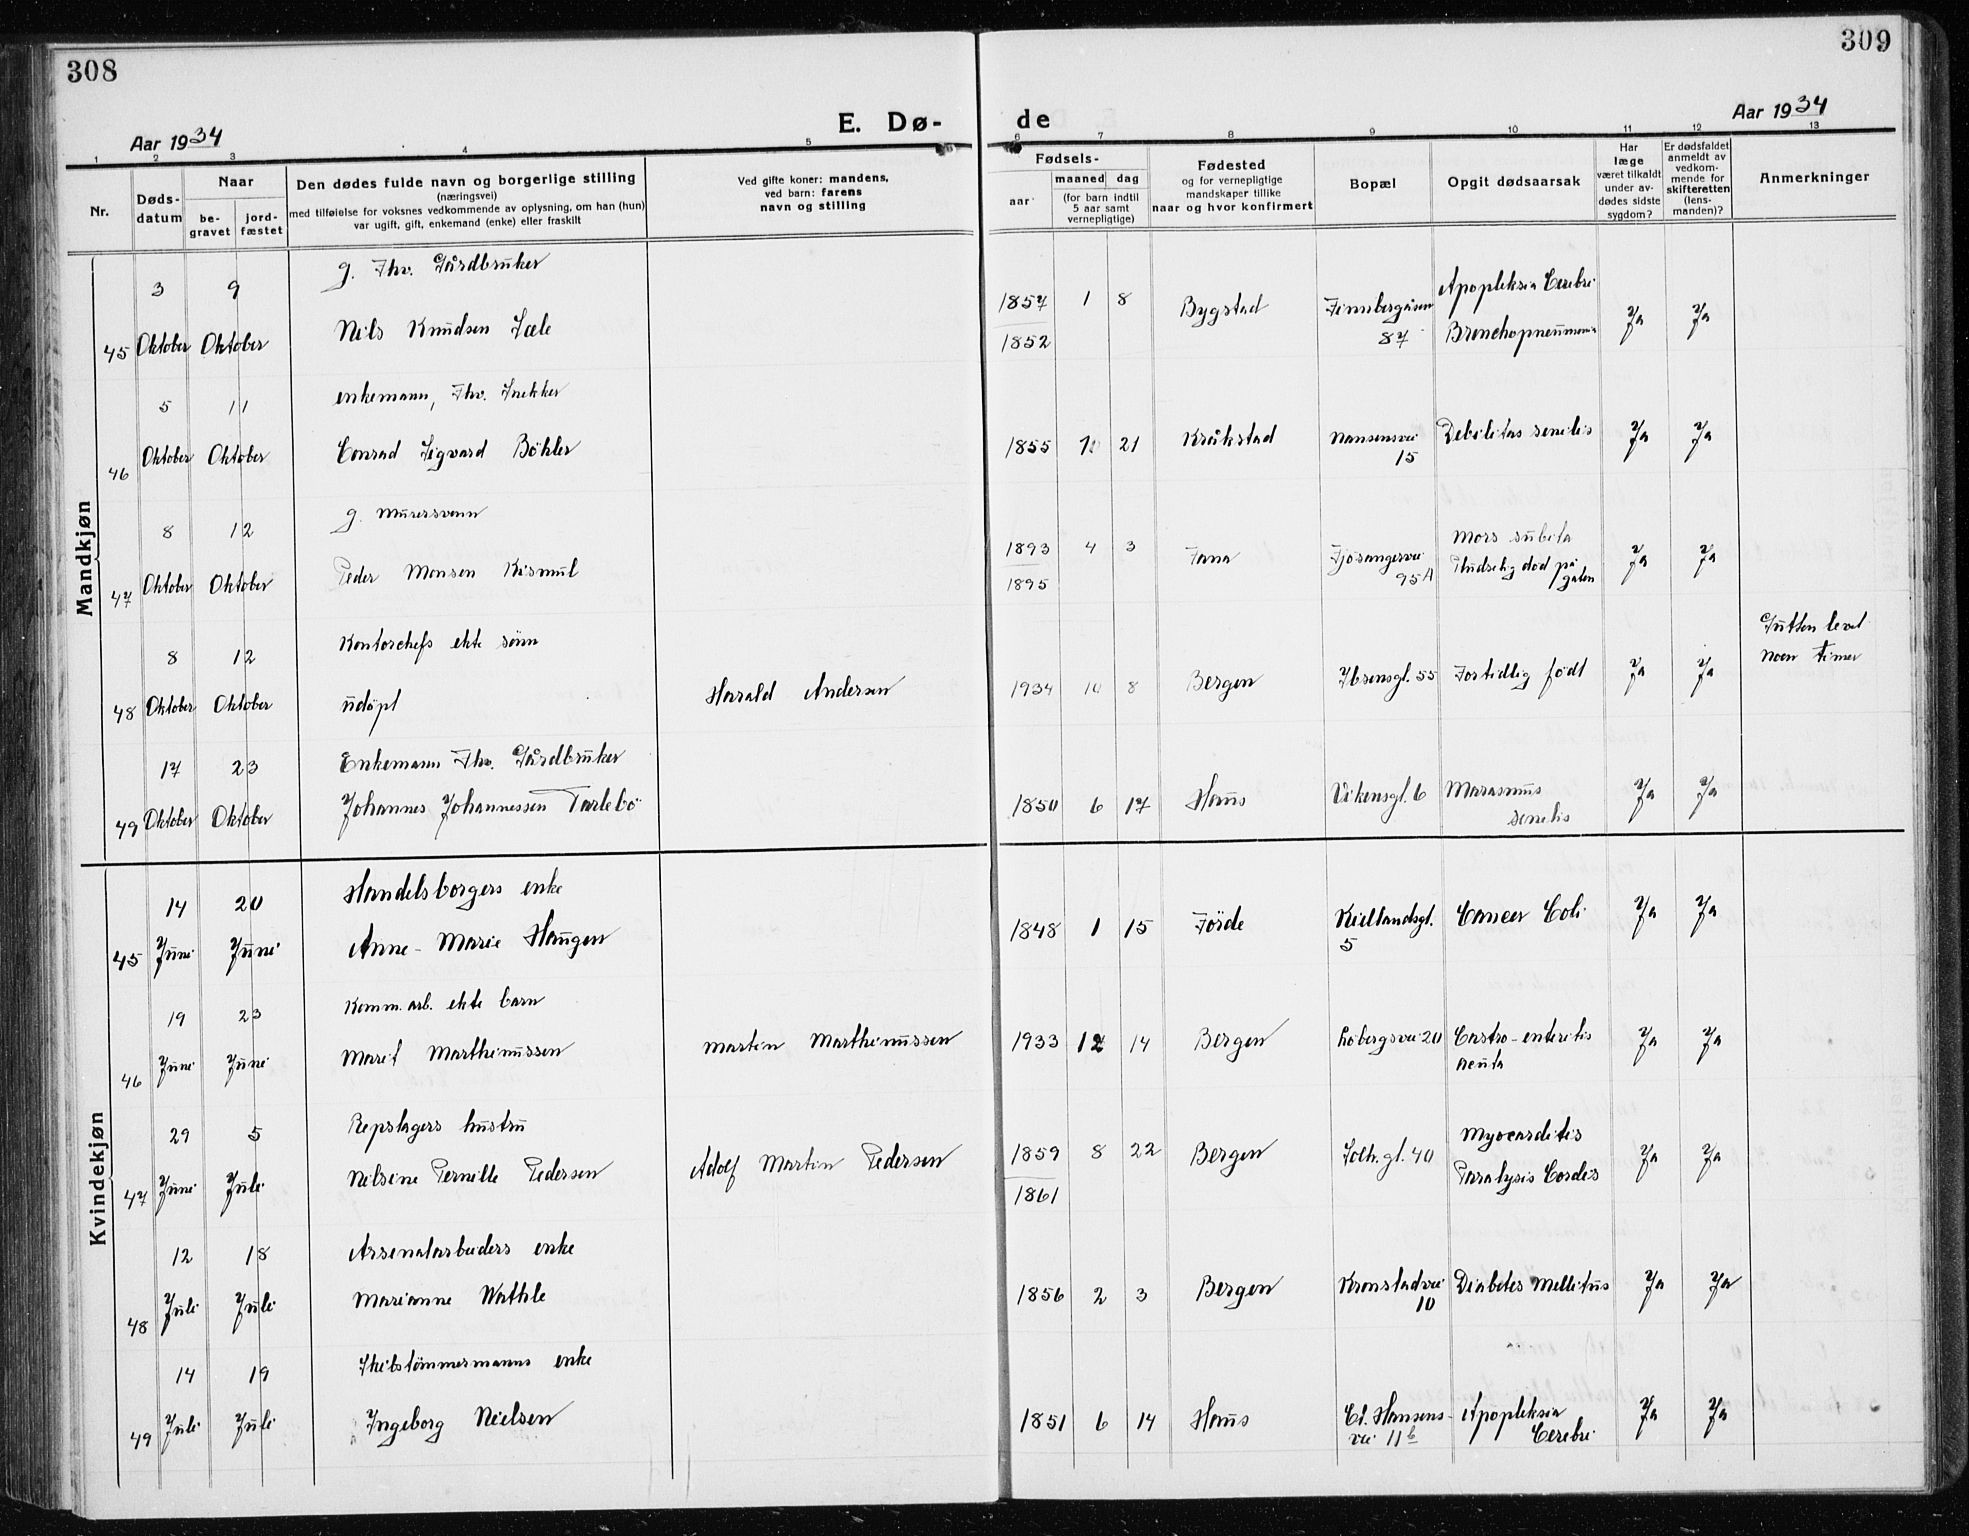 308
309
E. Dø-
de
Aar 1934
Aar 1934
1 2 3 4 5 6 7 8 9 10 11 12 13
Nr.
Døds-
datum
Naar
be-
gravet
jord-
fæstet
Den dødes fulde navn og borgerlige stilling
(næringsvei)
med tilføielse for voksnes vedkommende av oplysning, om han (hun)
var ugift, gift, enkemand (enke) eller fraskilt
Ved gifte koner: mandens,
ved barn: farens
navn og stilling
Fødsels-
aar
maaned dag
(for barn indtil
5 aar samt
vernepligtige)
Fødested
og for vernepligtige
mandskaper tillike
naar og hvor konfirmert
Bopæl
Opgit dødsaarsak
Har
læge
været tilkaldt
under av-
dødes sidste
sygdom?
Er dødsfaldet
anmeldt av
vedkom-
mende for
skifteretten
(lens-
manden)?
Anmerkninger
Mandkjøn
3 9 g. Fhv. Gårdbruker
45 Oktober Oktober Nils Knudsen Sæle
1857 1 8 Bygstad Finnbergåsen
87
1852
Apopleksia Cerebri
Bronchopneumonia
Ja Ja
5 11 enkemann, Fhv. Snekker
46 Oktober Oktober Conrad Sigvard Böhler
1855 10 21 Kråkstad Nansensvei
15
Debilitas senilis
Ja Ja
8 12 g. Murersvenn
47 Oktober Oktober Peder Monsen Kismul
1893 4 3 Fana Fjösangervei
95A
1895
Mors subita
Pludselig död på
gaten
Ja Ja
8 12 Kontorchefs ekte sönn
48 Oktober Oktober udöpt
Harald Andersen
1934 10 8 Bergen Ibsensgt. 55 For tidlig född
Ja Ja
Gutten levet
noen timer
17 23 Enkemann Fhv. Gårdbruker
49 Oktober Oktober Johannes Johannessen Tarlebö
1850 6 17 Haus Vikensgt. 6 Marasmus
senilis
Ja Ja
Kvindekjøn
14 20 Handelsborgers enke
45 Juni Juni Anne-Marie Haugen
1848 1 15 Förde Kiellandsgt.
5
Cancer Coli
Ja Ja
19 23 Komm.arb. ekte barn
46 Juni Juni Marit Marthinussen
Martin Marthinussen
1933 12 14 Bergen Löbergsvei 20 Gastro-enteritis
acuta
Ja Ja
29 5 Repslagers hustru
47 Juni Juli Nilsine Pernille Pedersen
Adolf Martin Pedersen
1859 8 22 Bergen Solh.gt. 40
1861
Myocarditis
Paralysis Cordis
Ja Ja
12 18 Arsenalarbeiders enke
48 Juli Juli Marianne Wathle
1856 2 3 Bergen Kronstadvei
10
Diabetes Mellitus
Ja Ja
14 19 Skibstömmermanns enke
49 Juli Juli Ingeborg Nielsen
1851 6 14 Haus Cl. Hansens-
vei 11b
Apopleksia
Cerebri
Ja Ja